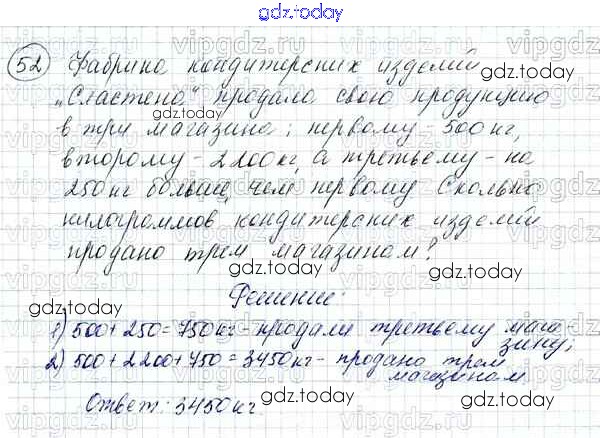 gdz.today
52 Фабрика кондитерских изделий
„Сластена" продала свою продукцию
в три магазина: первому - 500 кг,
второму - 2200 кг, а третьему - на
250 кг больше, чем первому. Сколько
килограммов кондитерских изделий
продано трем магазинам?
Решение:
1) 500 + 250 = 750 кг - продали третьему мага-
зину;
2) 500 + 2200 + 750 = 3450 кг - продано трем
магазинам
Ответ: 3450 кг
gdz.today